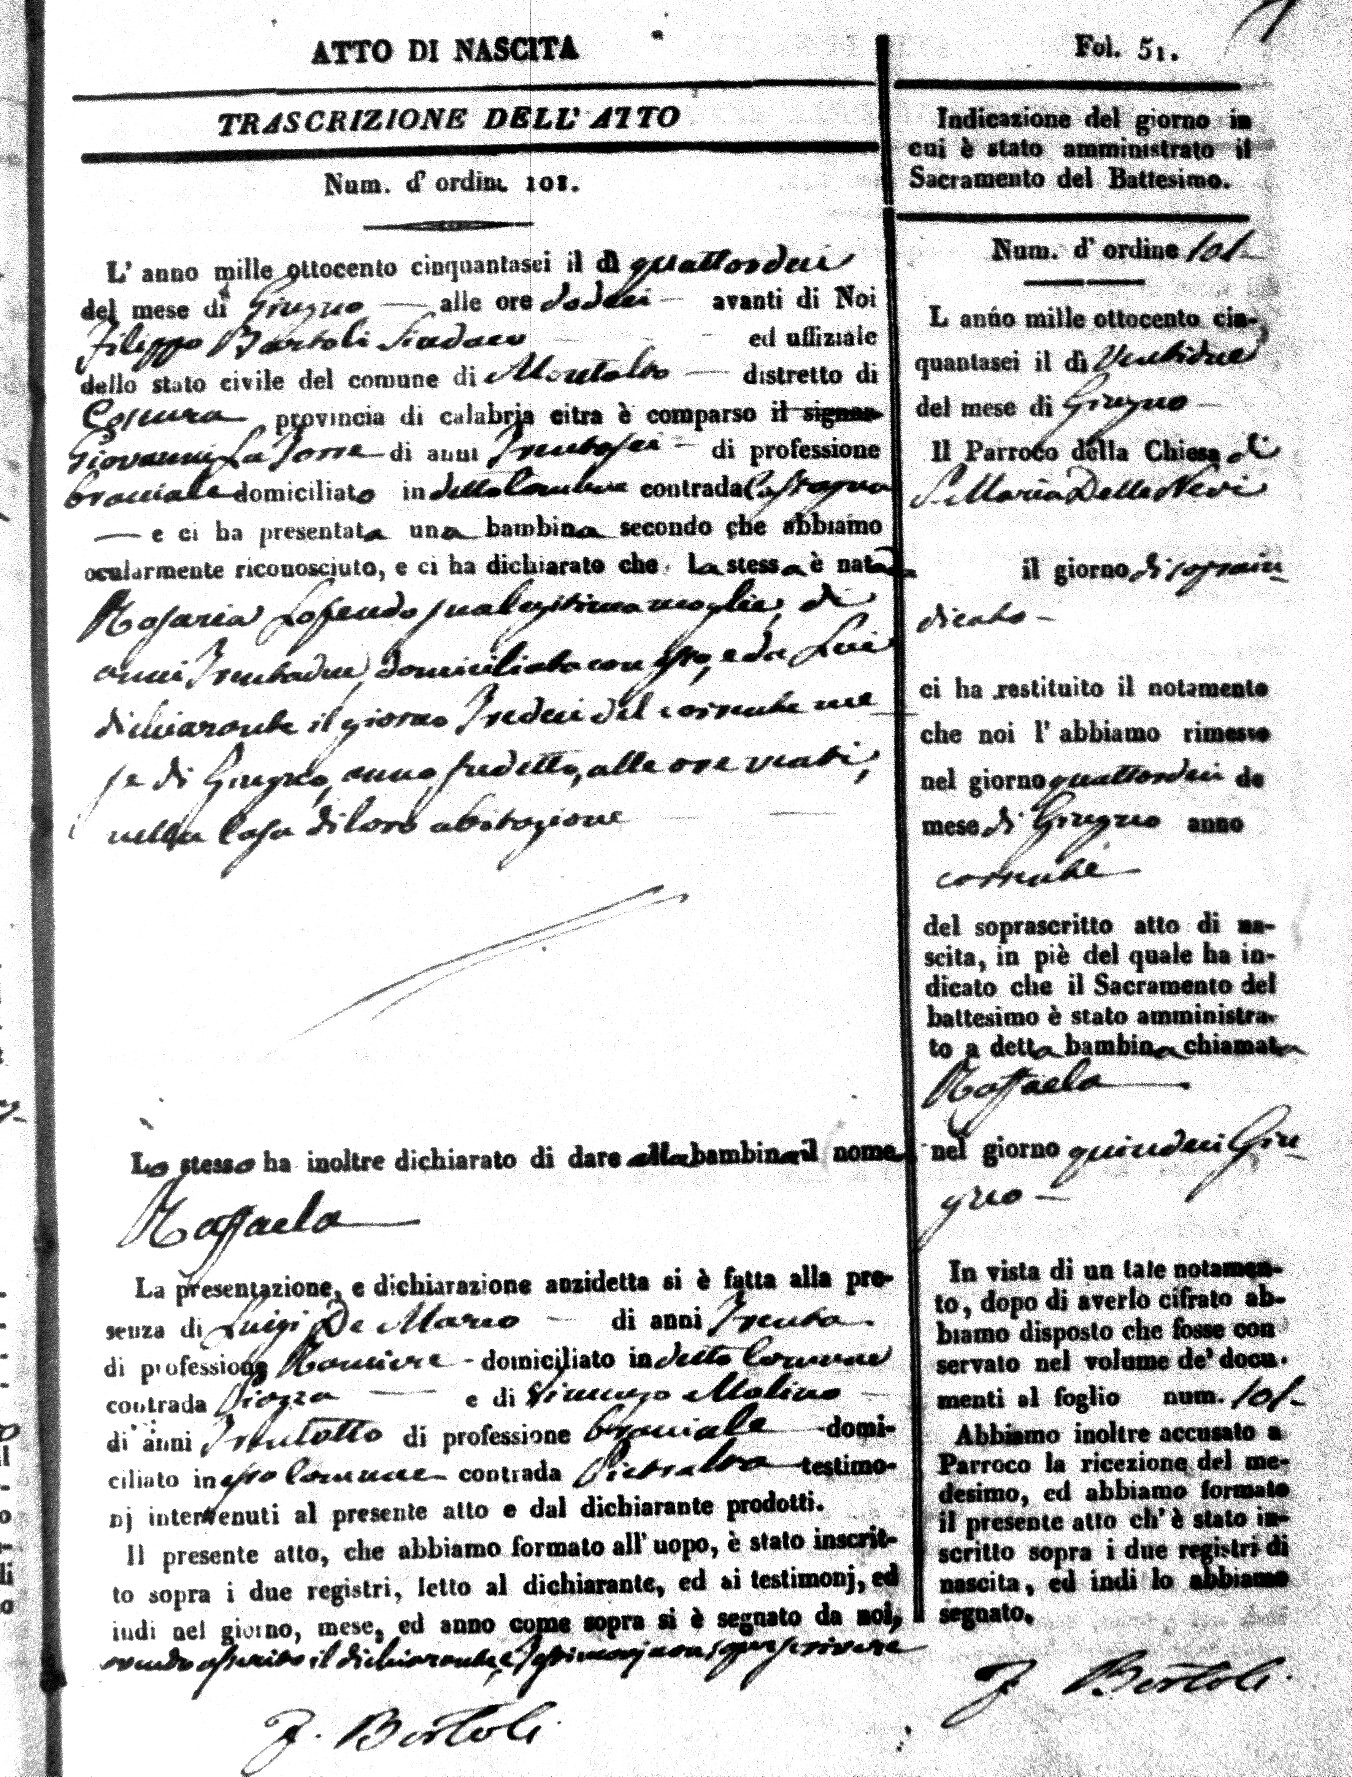 ATTO DI NASCITA
TRASCRIZIONE DELL' ATTO
Num. d' ordine 101.
L' anno mille ottocento cinquantasei il dì quattordeci
del mese di Giugno — alle ore dodeci — avanti di Noi
Filippo Bartoli Sindaco ed uffiziale
dello stato civile del comune di Montalto — distretto di
Cosenza provincia di calabria citra è comparso il signor
Giovanni La Torre di anni Trentasei — di professione
bracciale domiciliato in detto Comune contrada
— e ci ha presentata una bambina secondo che abbiamo
ocularmente riconosciuto, e ci ha dichiarato che la stessa è nata da
Rosaria Lofendo sua legitima moglie, di
anni Trentadue, domiciliata con esso, e da Lui
dichiarante il giorno Tredeci del corrente me
se di Giugno, anno sudetto, alle ore venti,
nella Casa di loro abitazione
Lo stesso ha inoltre dichiarato di dare alla bambina il nome
Raffaela
La presentazione, e dichiarazione anzidetta si è fatta alla pre-
senza di Luigi De Marco — di anni Trenta
di professione domiciliato in detto Comune
contrada Piazza — e di Vincenzo Molino —
di anni Trentotto di professione bracciale domi-
ciliato in esso Comune contrada Pietralta testimo-
nj intervenuti al presente atto e dal dichiarante prodotti.
Il presente atto, che abbiamo formato all' uopo, è stato inscrit-
to sopra i due registri, letto al dichiarante, ed ai testimonj, ed
indi nel giorno, mese, ed anno come sopra si è segnato da noi,
avendo asserito il dichiarante, e Testimonj non saper scrivere
F. Bartoli
Fol. 51.
Indicazione del giorno in
cui è stato amministrato il
Sacramento del Battesimo.
Num. d' ordine 101-
L anno mille ottocento cin-
quantasei il dì Ventidue
del mese di Giugno —
Il Parroco della Chiesa di
S. Maria Della Nevi
il giorno di soprain-
dicato —
ci ha restituito il notamento
che noi l' abbiamo rimesso
nel giorno quattordeci de
mese di Giugno anno
corrente
del soprascritto atto di na-
scita, in piè del quale ha in-
dicato che il Sacramento del
battesimo è stato amministra-
to a detta bambina chiamata
Raffaela
nel giorno quindeci Giu
gno —
In vista di un tale notamen-
to, dopo di averlo cifrato ab-
biamo disposto che fosse con
servato nel volume de' docu-
menti al foglio num. 101-
Abbiamo inoltre accusato a
Parroco la ricezione del me-
desimo, ed abbiamo formato
il presente atto ch' è stato in-
scritto sopra i due registri di
nascita, ed indi lo abbiamo
segnato.
F. Bartoli.